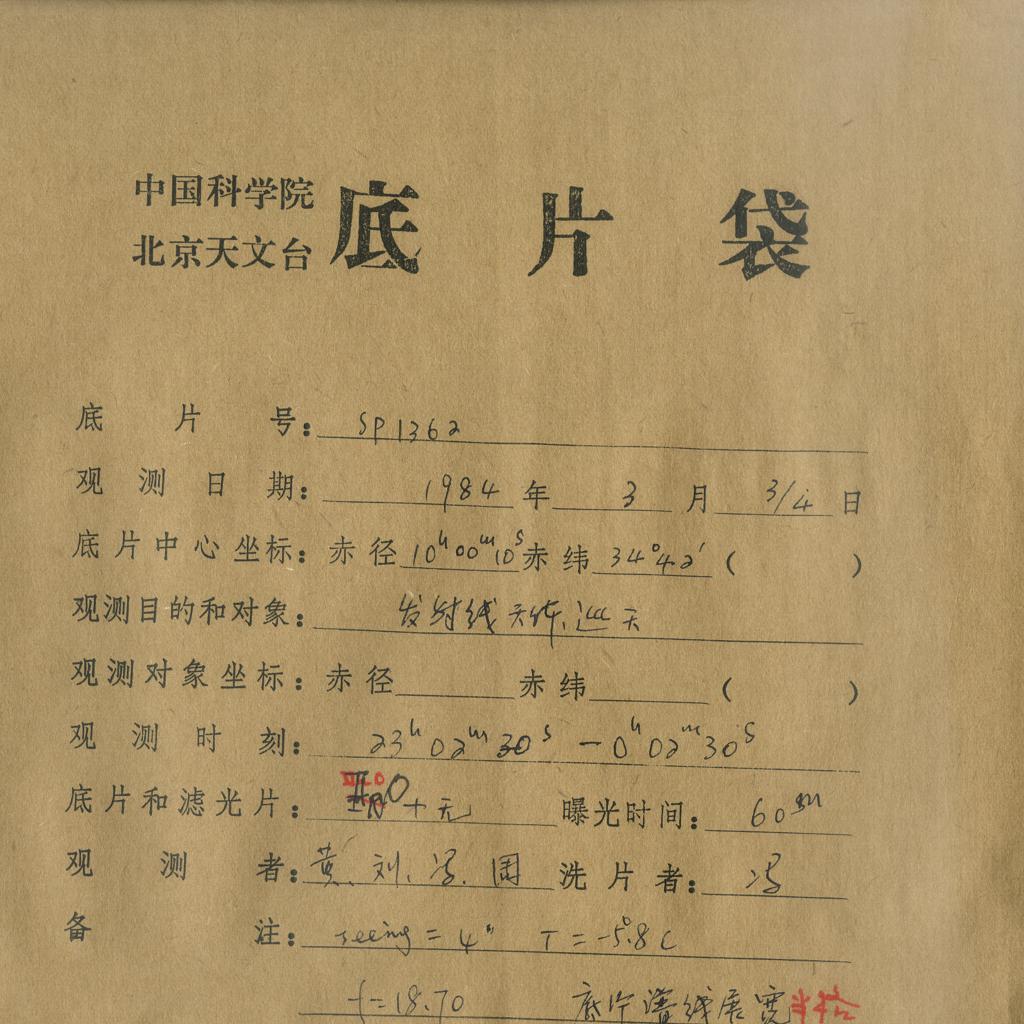 中国科学院
北京天文台
底片袋
底片号: SP1362
观测日期: 1984年3月3/4日
底片中心坐标: 赤径10ʰ00ᵐ10ˢ赤纬34°42′( )
观测目的和对象: 发射线天体、巡天
观测对象坐标: 赤径 赤纬 ( )
观测时刻: 23ʰ02ᵐ30ˢ-0ʰ02ᵐ30ˢ
底片和滤光片: +无 曝光时间: 60ᵐ
观测者: 黄、刘、冯、周 洗片者: 冯
备注: seeing=4" T=-5.8°C
f=18.70 底片谱线展宽